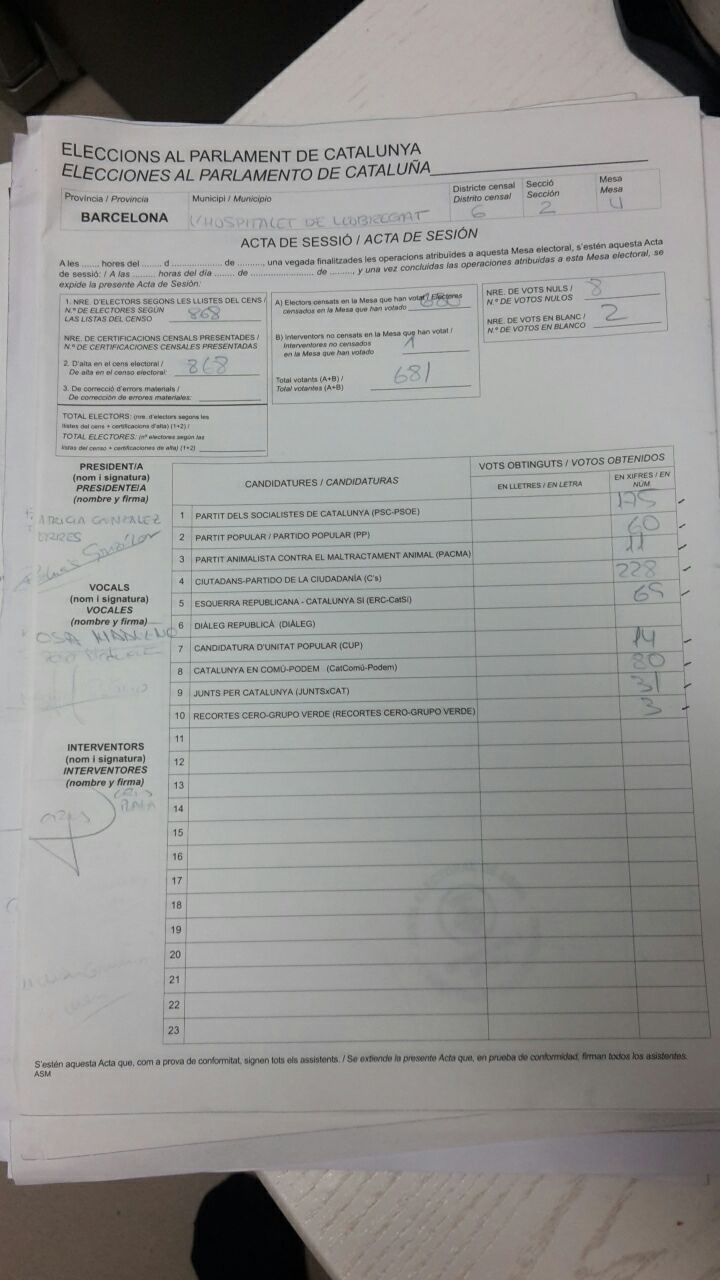 ELECCIONS AL PARLAMENT DE CATALUNYA
ELECCIONES AL PARLAMENTO DE CATALUÑA
Província / Provincia
BARCELONA
Municipi / Municipio
L'HOSPITALET DE LLOBREGAT
Districte censal
Distrito censal
6
Secció
Sección
2
Mesa
Mesa
4
ACTA DE SESSIÓ / ACTA DE SESIÓN
A les ....... hores del ...... d .................. de .........., una vegada finalitzades les operacions atribuïdes a aquesta Mesa electoral, s'estén aquesta Acta
de sessió: / A las ......... horas del día ...... de ..................... de ........., y una vez concluidas las operaciones atribuidas a esta Mesa electoral, se
expide la presente Acta de Sesión:
1. NRE. D'ELECTORS SEGONS LES LLISTES DEL CENS /
N.º DE ELECTORES SEGÚN
LAS LISTAS DEL CENSO 868
NRE. DE CERTIFICACIONS CENSALS PRESENTADES /
N.º DE CERTIFICACIONES CENSALES PRESENTADAS
2. D'alta en el cens electoral /
De alta en el censo electoral: 868
3. De correcció d'errors materials /
De corrección de errores materiales:
TOTAL ELECTORS: (nre. d'electors segons les
llistes del cens + certificacions d'alta) (1+2) /
TOTAL ELECTORES: (nº electores según las
listas del censo + certificaciones de alta) (1+2)
A) Electors censats en la Mesa que han votat / Electores
censados en la Mesa que han votado 680
B) Interventors no censats en la Mesa que han votat /
Interventores no censados
en la Mesa que han votado 1
Total votants (A+B) /
Total votantes (A+B) 681
NRE. DE VOTS NULS /
N.º DE VOTOS NULOS 8
NRE. DE VOTS EN BLANC /
N.º DE VOTOS EN BLANCO 2
PRESIDENT/A
(nom i signatura)
PRESIDENTE/A
(nombre y firma)
GONZALEZ
VOCALS
(nom i signatura)
VOCALES
(nombre y firma)
INTERVENTORS
(nom i signatura)
INTERVENTORES
(nombre y firma)
CANDIDATURES / CANDIDATURAS
VOTS OBTINGUTS / VOTOS OBTENIDOS
EN LLETRES / EN LETRA
EN XIFRES / EN NUM.
1 PARTIT DELS SOCIALISTES DE CATALUNYA (PSC-PSOE) 175
2 PARTIT POPULAR / PARTIDO POPULAR (PP) 60
3 PARTIT ANIMALISTA CONTRA EL MALTRACTAMENT ANIMAL (PACMA) 11
4 CIUTADANS-PARTIDO DE LA CIUDADANÍA (C's) 228
5 ESQUERRA REPUBLICANA - CATALUNYA SÍ (ERC-CatSí) 69
6 DIÀLEG REPUBLICÀ (DIÀLEG)
7 CANDIDATURA D'UNITAT POPULAR (CUP) 14
8 CATALUNYA EN COMÚ-PODEM (CatComú-Podem) 80
9 JUNTS PER CATALUNYA (JUNTSxCAT) 31
10 RECORTES CERO-GRUPO VERDE (RECORTES CERO-GRUPO VERDE) 3
11
12
13
14
15
16
17
18
19
20
21
22
23
S'estén aquesta Acta que, com a prova de conformitat, signen tots els assistents. / Se extiende la presente Acta que, en prueba de conformidad, firman todos los asistentes.
ASM